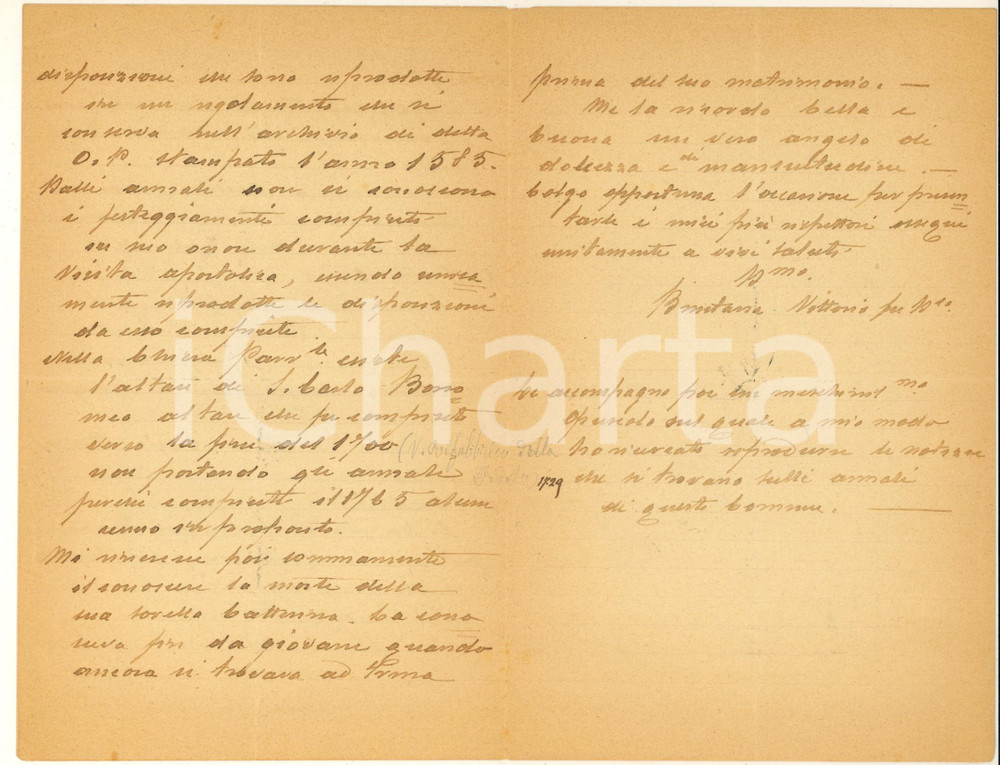 disposizioni che sono riprodotte
in un regolamento che si
conserva nell'archivio di detta
O. P. stampato l'anno 1585.
Dalli annali non si conoscono
i festeggiamenti compiuti
in suo onore durante la
Visita apostolica, essendo unica
mente riprodotte le disposizioni
da esso compiute
Nella Chiesa Parr.le esiste
l'altare di S. Carlo Borro
meo altare che fu compiuto
verso la fine del 1700 (V. della
non portando gli annali 1729
perchè compiuti il 1765 alcun
cenno in proposito.
Mi rincresce poi sommamente
il conoscere la morte della
sua sorella Catterina. La cono
sceva fin da giovane quando
ancora si trovava ad Irma
prima del suo matrimonio. —
Me la ricordo bella e
buona un vero angelo di
dolcezza e di mansuetudine. —
Colgo opportuna l'occasione per presen
tarle i miei più rispettosi ossequi
unitamente a vivi saluti
Vittorio fu
Le accompagno poi un meschiniss.mo
Opuscolo sul quale a mio modo
ho ricercato riprodurre le notizie
che si trovano sulli annali
di questo Comune. —
iCharta